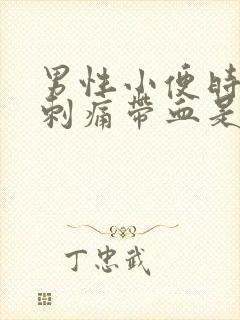 男性小便時
刺痛帶血是
丁忠武